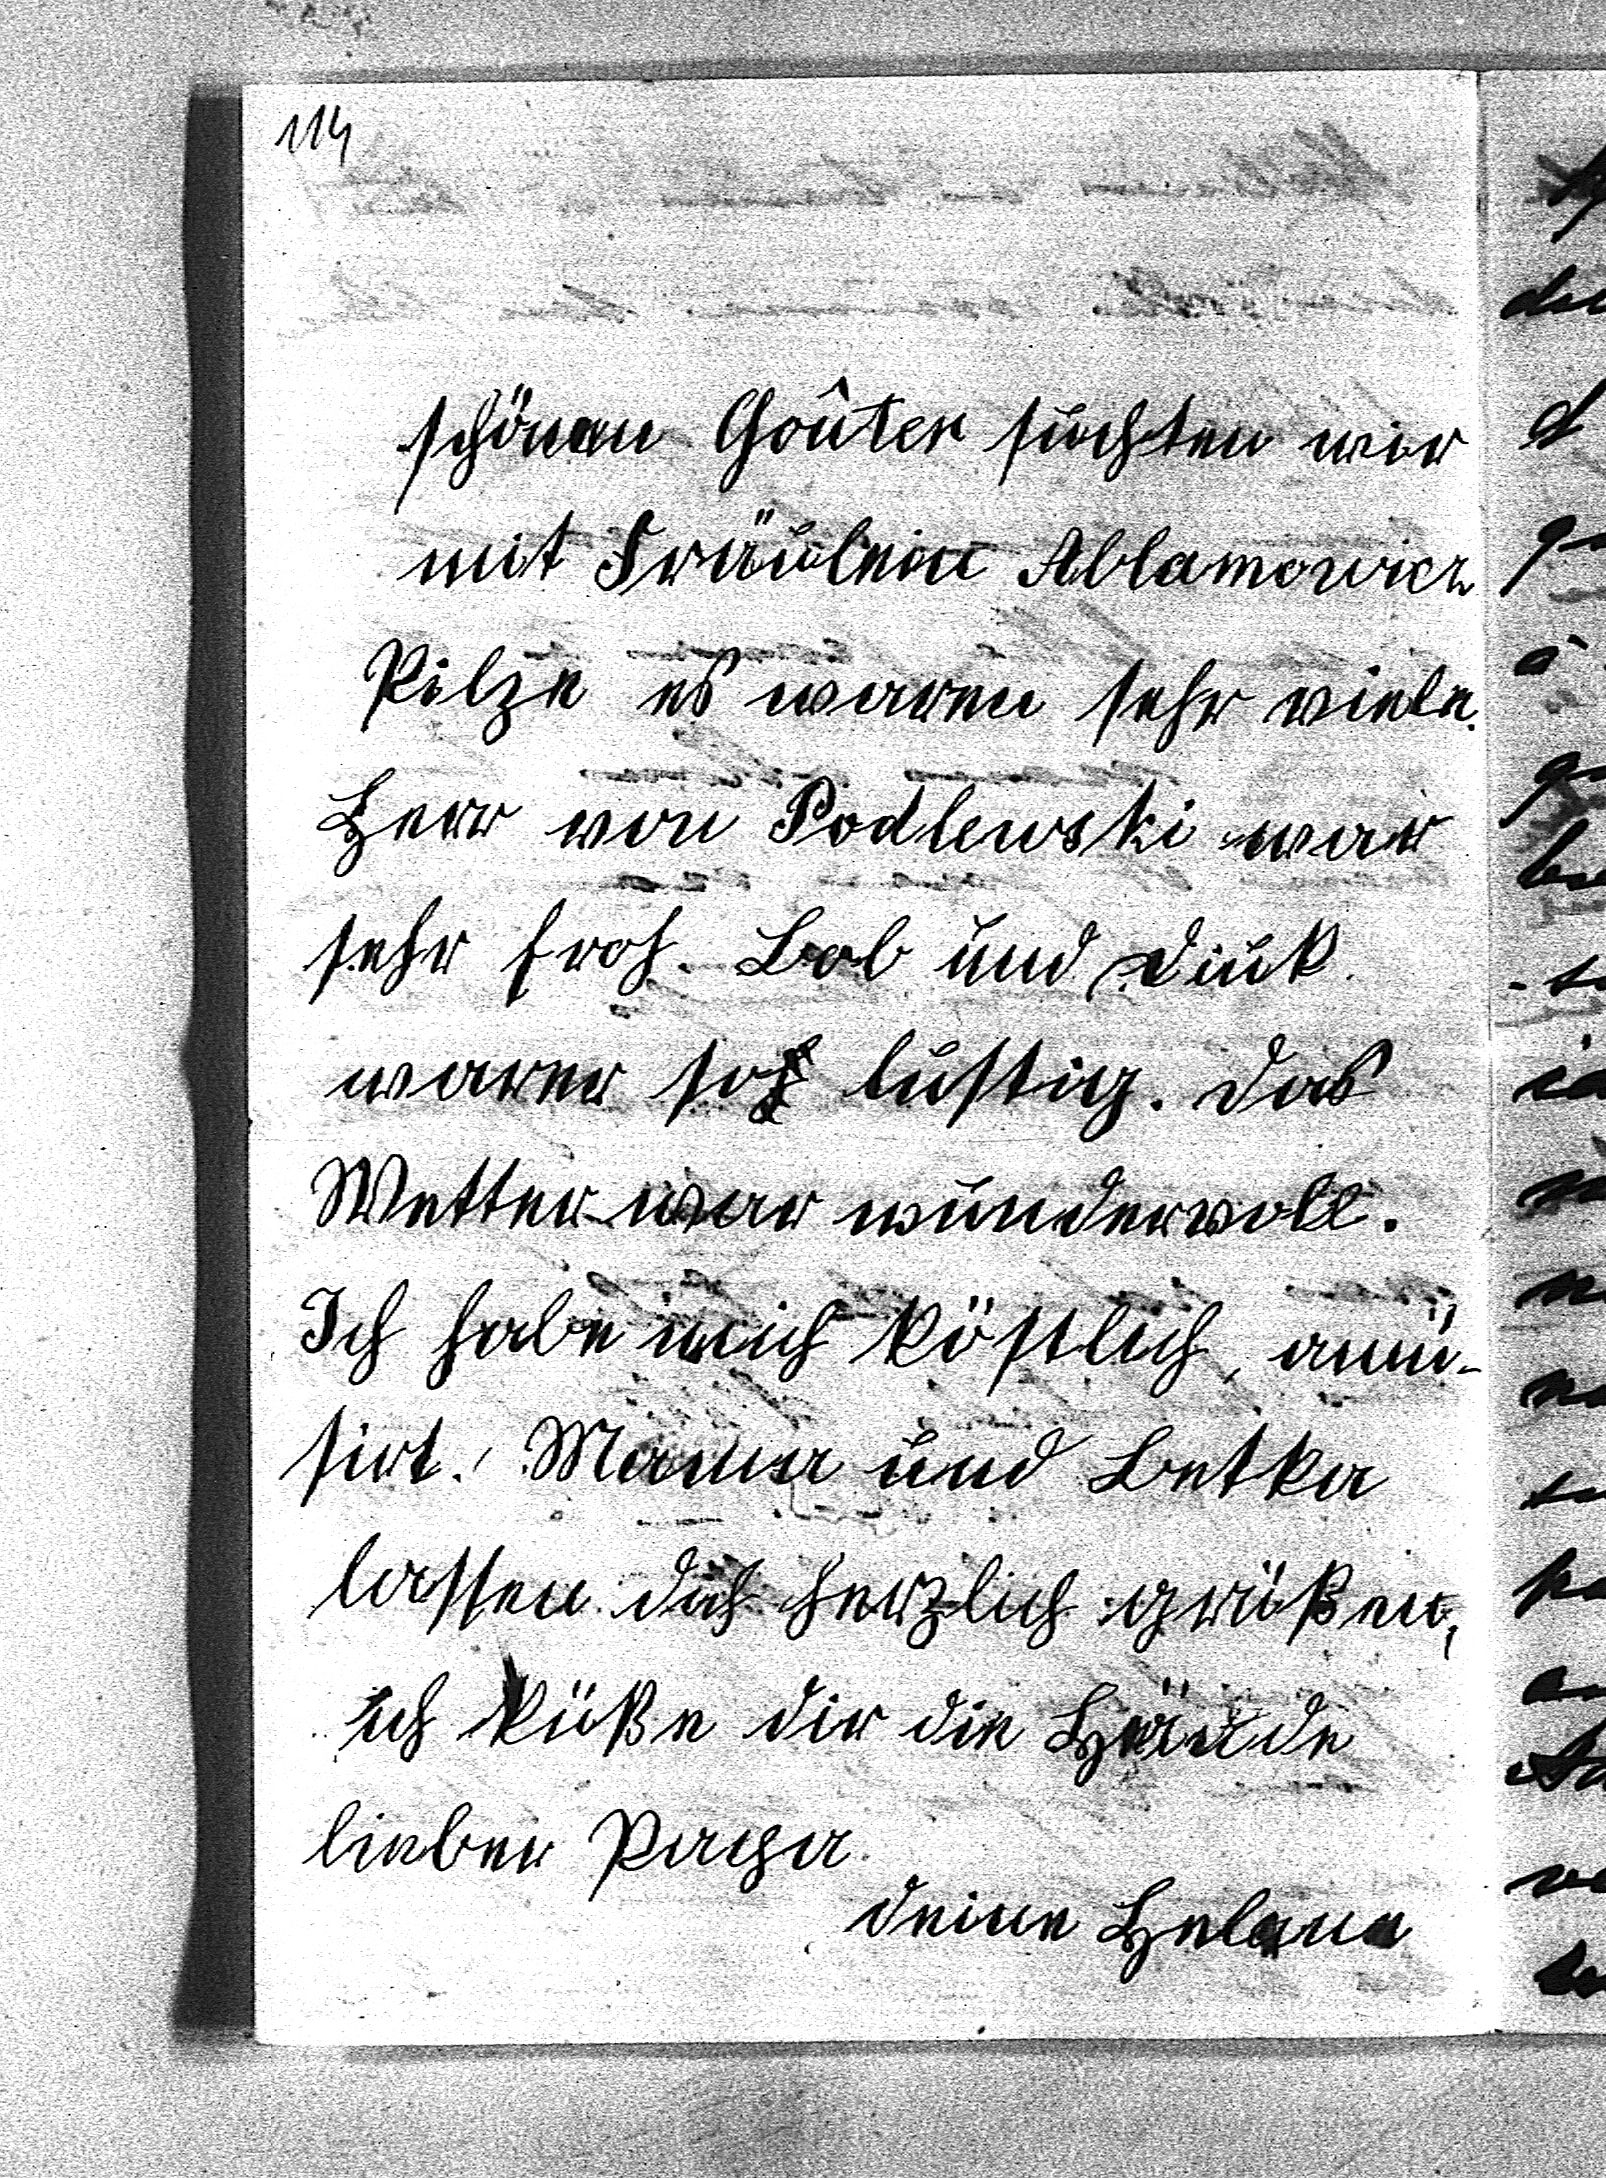 114
schönen Goûter suchten wir
mit Fräulein Ablamowicz
Pilze es waren sehr viele.
Herr von Podlewski war
sehr froh. Bob und Duk
waren so lustig. Das
Wetter war wundervoll.
Ich habe mich köstlich, amü-
sirt. Mama und Betka
lassen dich herzlich grüßen,
ich küße dir die Hände
lieber Papa.
deine Helena